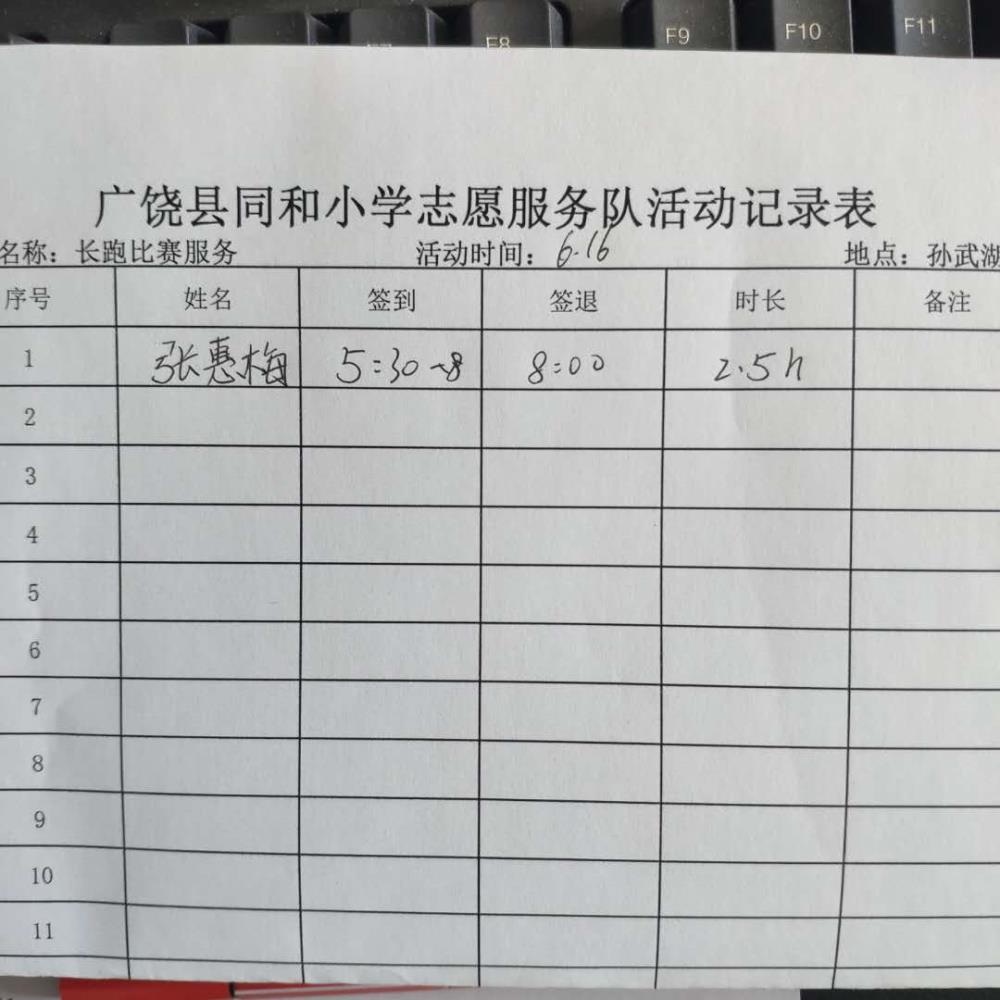 F8 F9 F10 F11
广饶县同和小学志愿服务队活动记录表
名称：长跑比赛服务 活动时间：6.16 地点：孙武湖
序号 姓名 签到 签退 时长 备注
1 张惠梅 5:30-8 8:00 2.5h
2
3
4
5
6
7
8
9
10
11